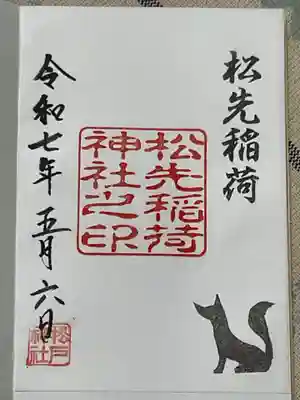 松先稲荷
松先稲荷
神社之印
令和七年五月六日
松戸
神社